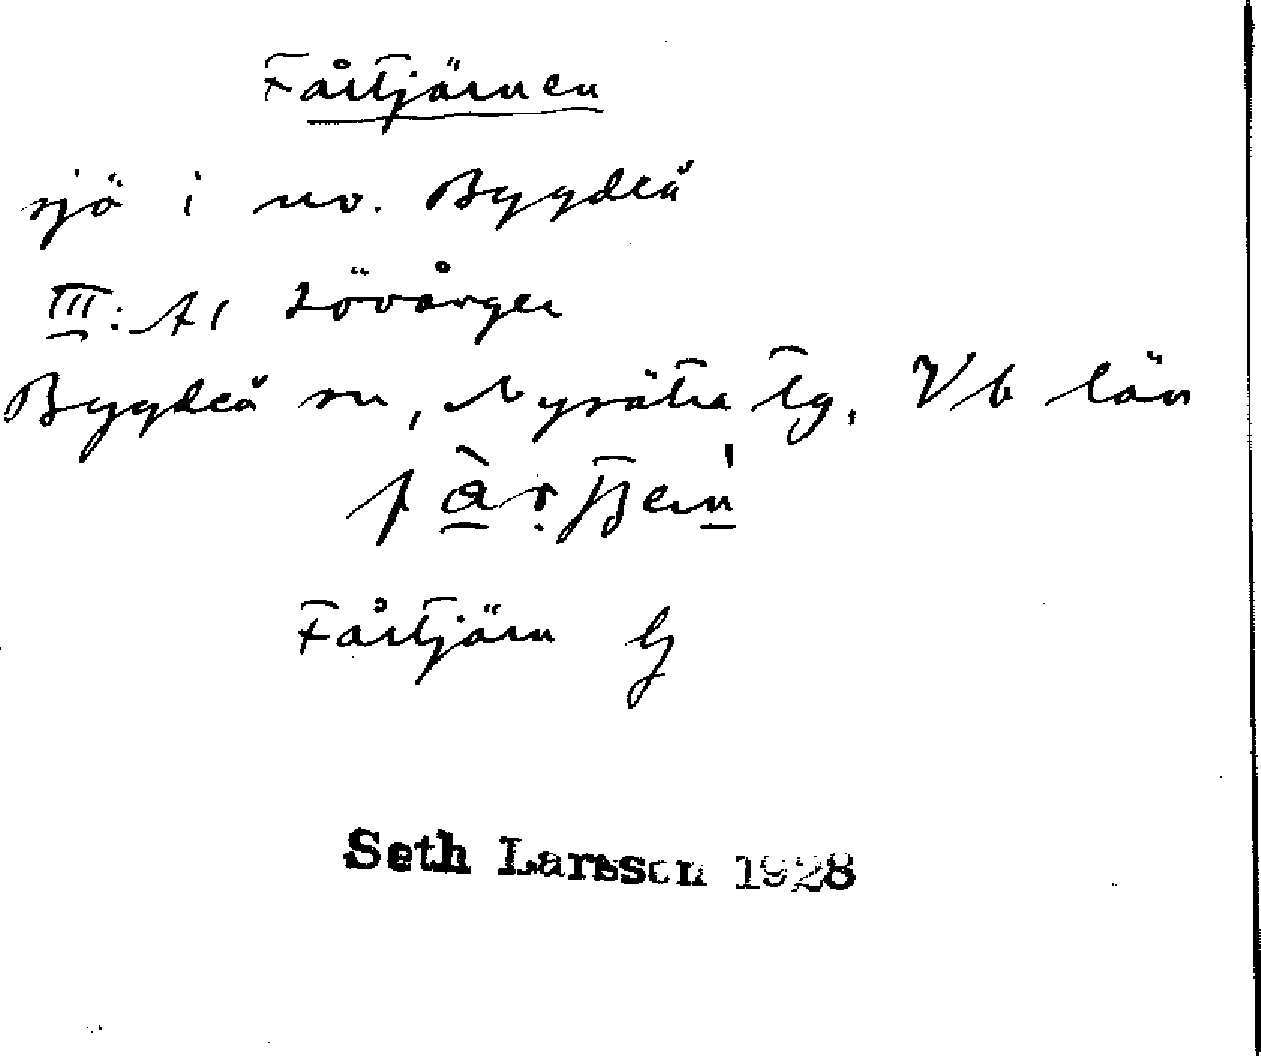 Fårtjärnen
sjö i no. Bygdeå
III: A1 Lövånger
Bygdeå sn, Nysätra tg, Vb län
Fårtjärn
Seth Larsson 1928